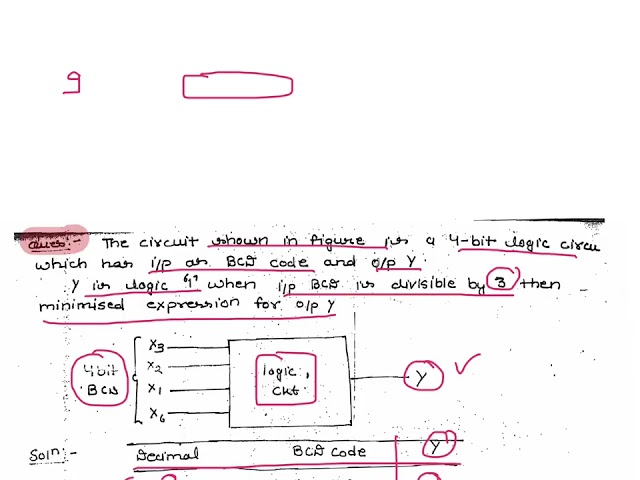 9
Ques:- The circuit shown in figure is a 4-bit logic circu
which has i/p as BCD code and o/p Y.
Y is logic "1" when i/p BCD is divisible by 3 then
minimised expression for o/p Y
4bit BCD
X3
X2
X1
X0
logic ckt.
Y
Soln:-
Decimal BCD code Y